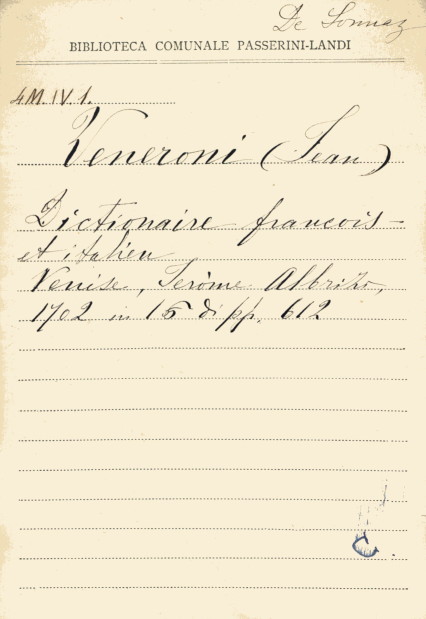 De Sonnaz
BIBLIOTECA COMUNALE PASSERINI-LANDI
4M.IV.1.
Veneroni (Jean)
Dictionaire francois
et italien
Venise, Jerôme Albrizzo,
1702 in 16 di pp. 612
C.